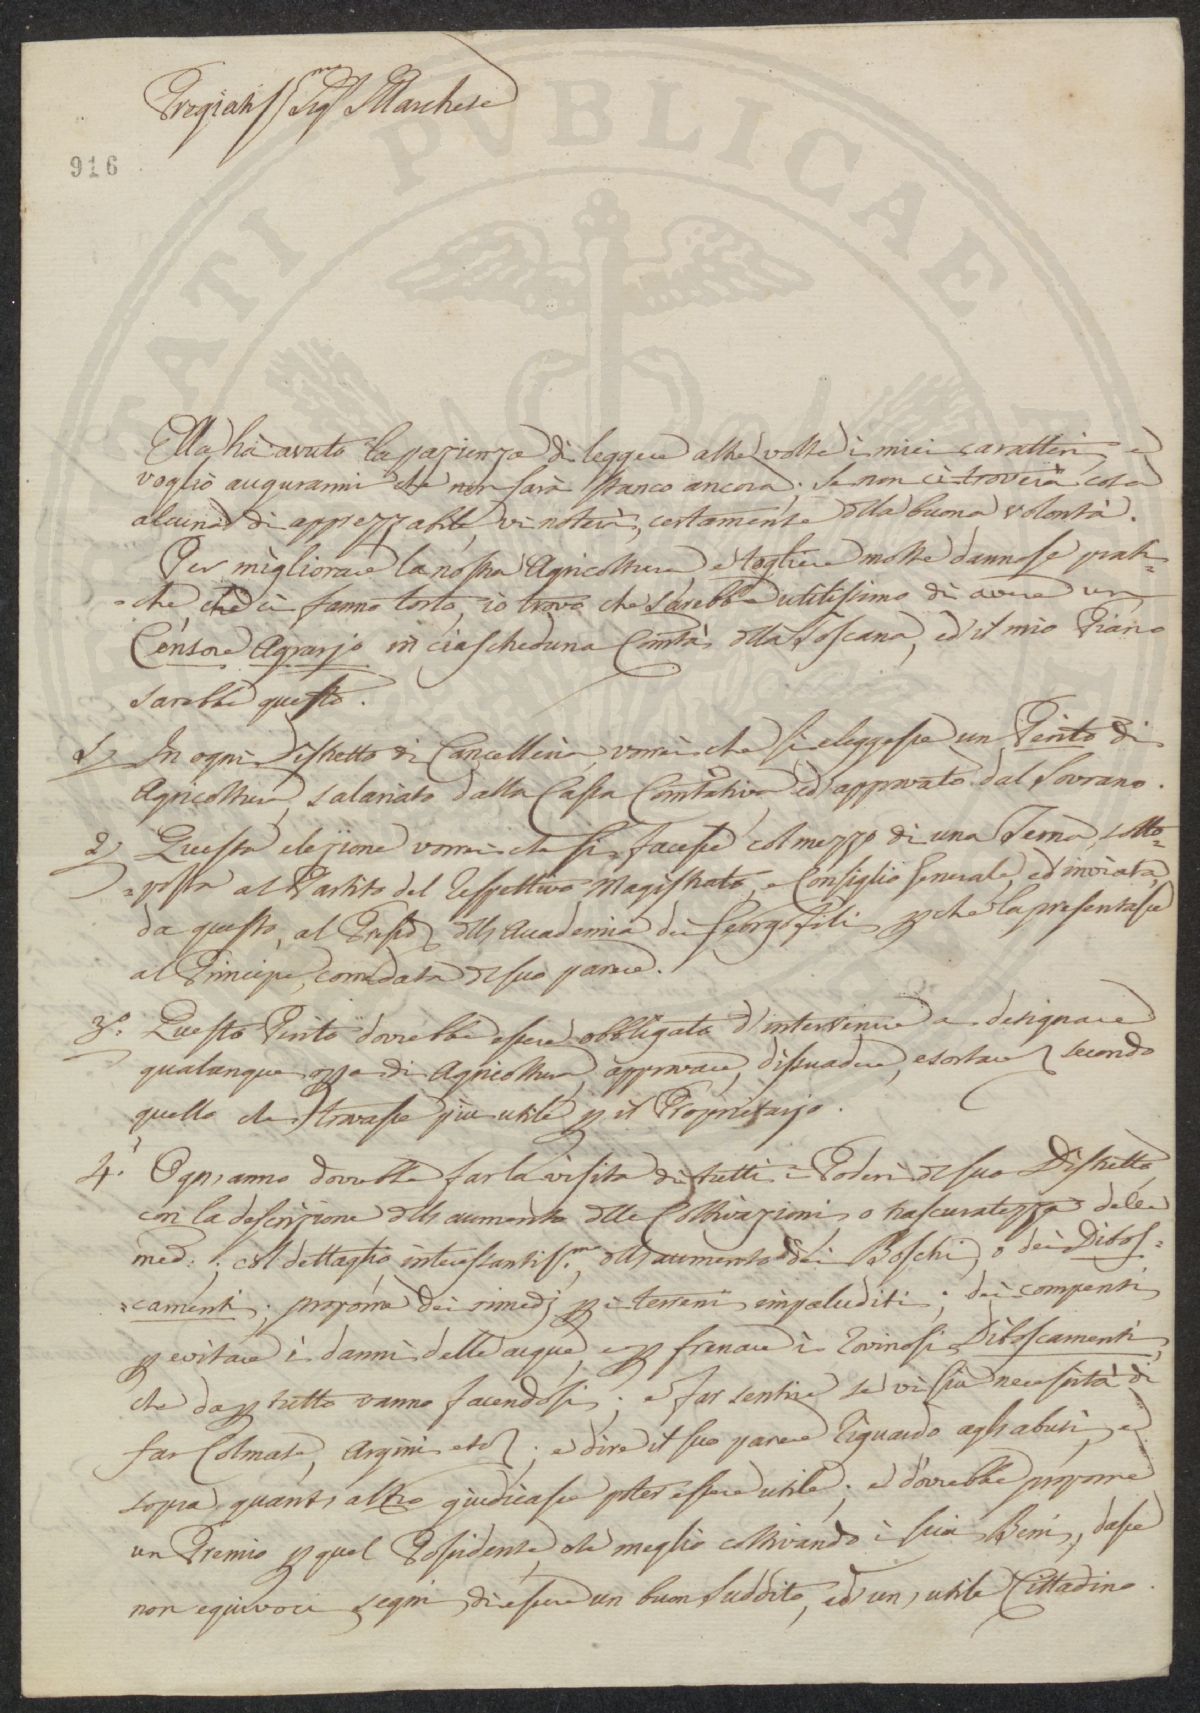 Pregiatiss.mo Sig.r Marchese
916
Ella hà avuto la pazienza di leggere altre volte i miei caratteri, e
voglio augurarmi che non sarà stanco ancora; se non ci troverà cosa
alcuna di apprezzabile, vi noterà, certamente della buona volontà.
Per migliorare la nostra Agricoltura e togliere molte dannose prati=
=che che ci fanno torto, io trovo che sarebbe utilissimo di avere un
Censore Agrario in ciascheduna Com.tà della Toscana, ed il mio Piano
sarebbe questo.
1.º In ogni Distretto di Cancelleria vorrei che si eleggesse un Perito di
Agricoltura, salariato dalla Cassa Com.tativa ed approvato dal Sovrano.
2.º Questa elezione vorrei che si facesse col mezzo di una Terna, sotto=
=posta al Partito del respettivo Magistrato, e Consiglio Generale, ed inviata
da questo, al Presid.e dell'Accademia dei Georgofili p che la presentasse
al Principe, corredata del suo parere.
3.º Questo Perito dovrebbe essere obbligato d'intervenire a designare
qualunque opra di Agricoltura, approvare, dissuadere, esortare secondo
quello che trovasse più utile p il Proprietario.
4.º Ogni anno dovrebbe far la visita di tutti i Poderi del suo Distretto
con la descrizione dell'aumento delle Coltivazioni o trascuratezza delle
med.e; col dettaglio interessantiss.mo dell'aumento dei Boschi, o dei Disbos=
=camenti; proporre dei rimedj p i terreni impaluditi; dei compensi
p evitare i danni delle acque, e p frenare i rovinosi Disboscamenti,
che da p tutto vanno facendosi; e far sentire se vi sia necessità di
far Colmate, Argini etc.; e dire il suo parere riguardo agli abusi, e
sopra quant'altro giudicasse poter essere utile; e dovrebbe proporre
un Premio p quel Possidente, che meglio coltivando i suoi Beni, dasse
non equivoci segni di essere un buon Suddito, ed un utile Cittadino.
PVBLICAE